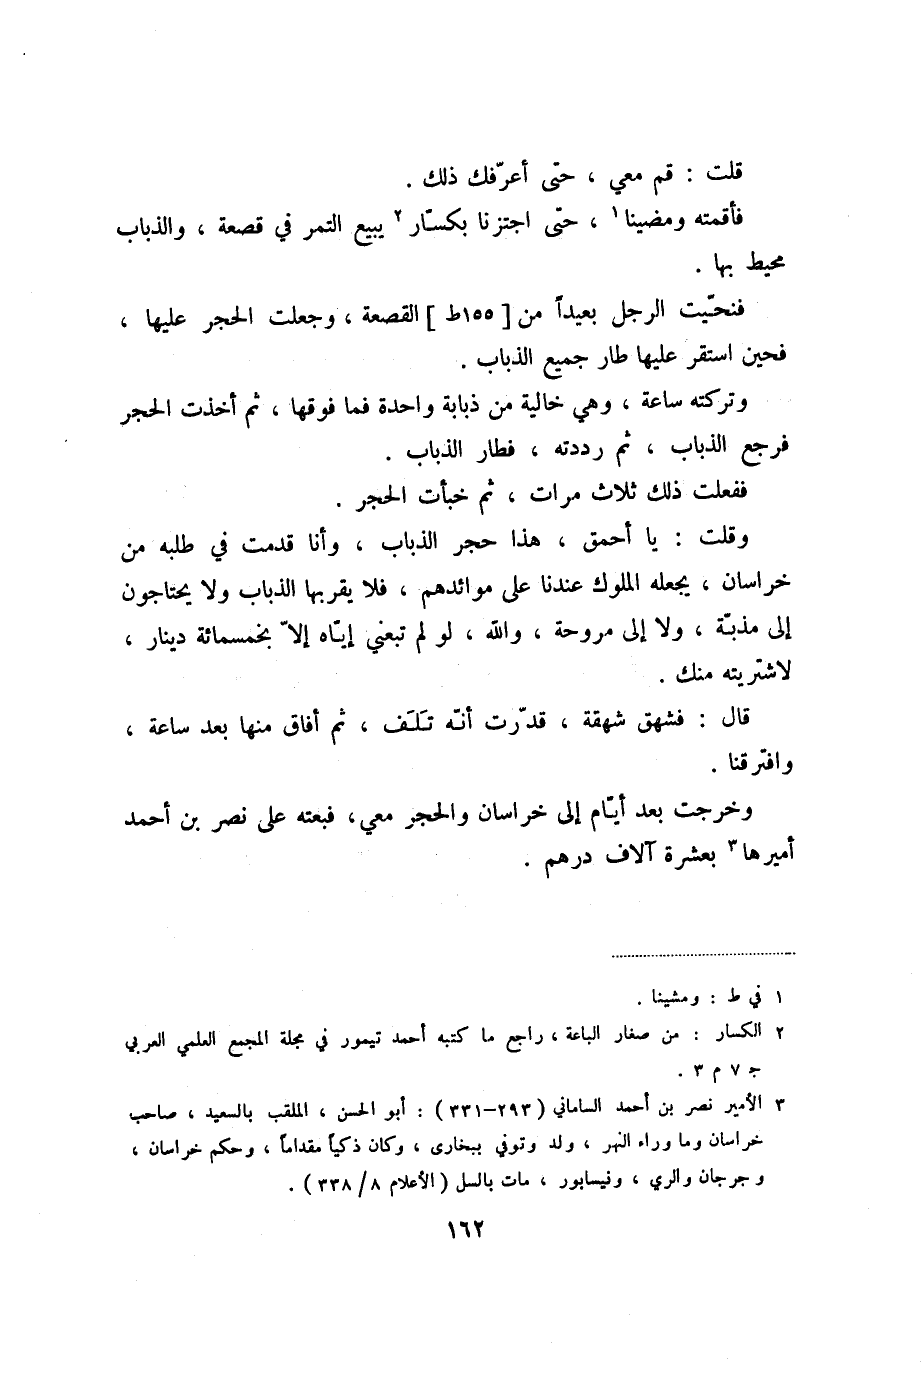 قلت : قم معي ، حتّى أعرّفك ذلك .
فأقمته ومضينا١ ، حتّى اجتزنا بكسّار٢ يبيع التمر في قصعة ، والذباب
محيط بها .
فنحّيت الرجل بعيداً من [ ١٥٥ط ] القصعة ، وجعلت الحجر عليها ،
فحين استقر عليها طار جميع الذباب .
وتركته ساعة ، وهي خالية من ذبابة واحدة فما فوقها ، ثم أخذت الحجر
فرجع الذباب ، ثم رددته ، فطار الذباب .
ففعلت ذلك ثلاث مرات ، ثم خبأت الحجر .
وقلت : يا أحمق ، هذا حجر الذباب ، وأنا قدمت في طلبه من
خراسان ، يجعله الملوك عندنا على موائدهم ، فلا يقربها الذباب ولا يحتاجون
إلى مذبّة ، ولا إلى مروحة ، والله ، لو لم تبعني إيّاه إلاّ بخمسمائة دينار ،
لاشتريته منك .
قال : فشهق شهقة ، قدّرت أنّه تَلَف ، ثم أفاق منها بعد ساعة ،
وافترقنا .
وخرجت بعد أيّام إلى خراسان والحجر معي، فبعته على نصر بن أحمد
أميرها٣ بعشرة آلاف درهم .
١ في ط : ومشينا .
٢ الكسار : من صغار الباعة ، راجع ما كتبه أحمد تيمور في مجلة المجمع العلمي العربي
ج ٧ م ٣ .
٣ الأمير نصر بن أحمد الساماني ( ٢٩٣-٣٣١ ) : أبو الحسن ، الملقب بالسعيد ، صاحب
خراسان وما وراء النهر ، ولد وتوفي ببخارى ، وكان ذكياً مقداماً ، وحكم خراسان ،
وجرجان والري ، ونيسابور ، مات بالسل ( الأعلام ٨ / ٣٣٨ ) .
١٦٢